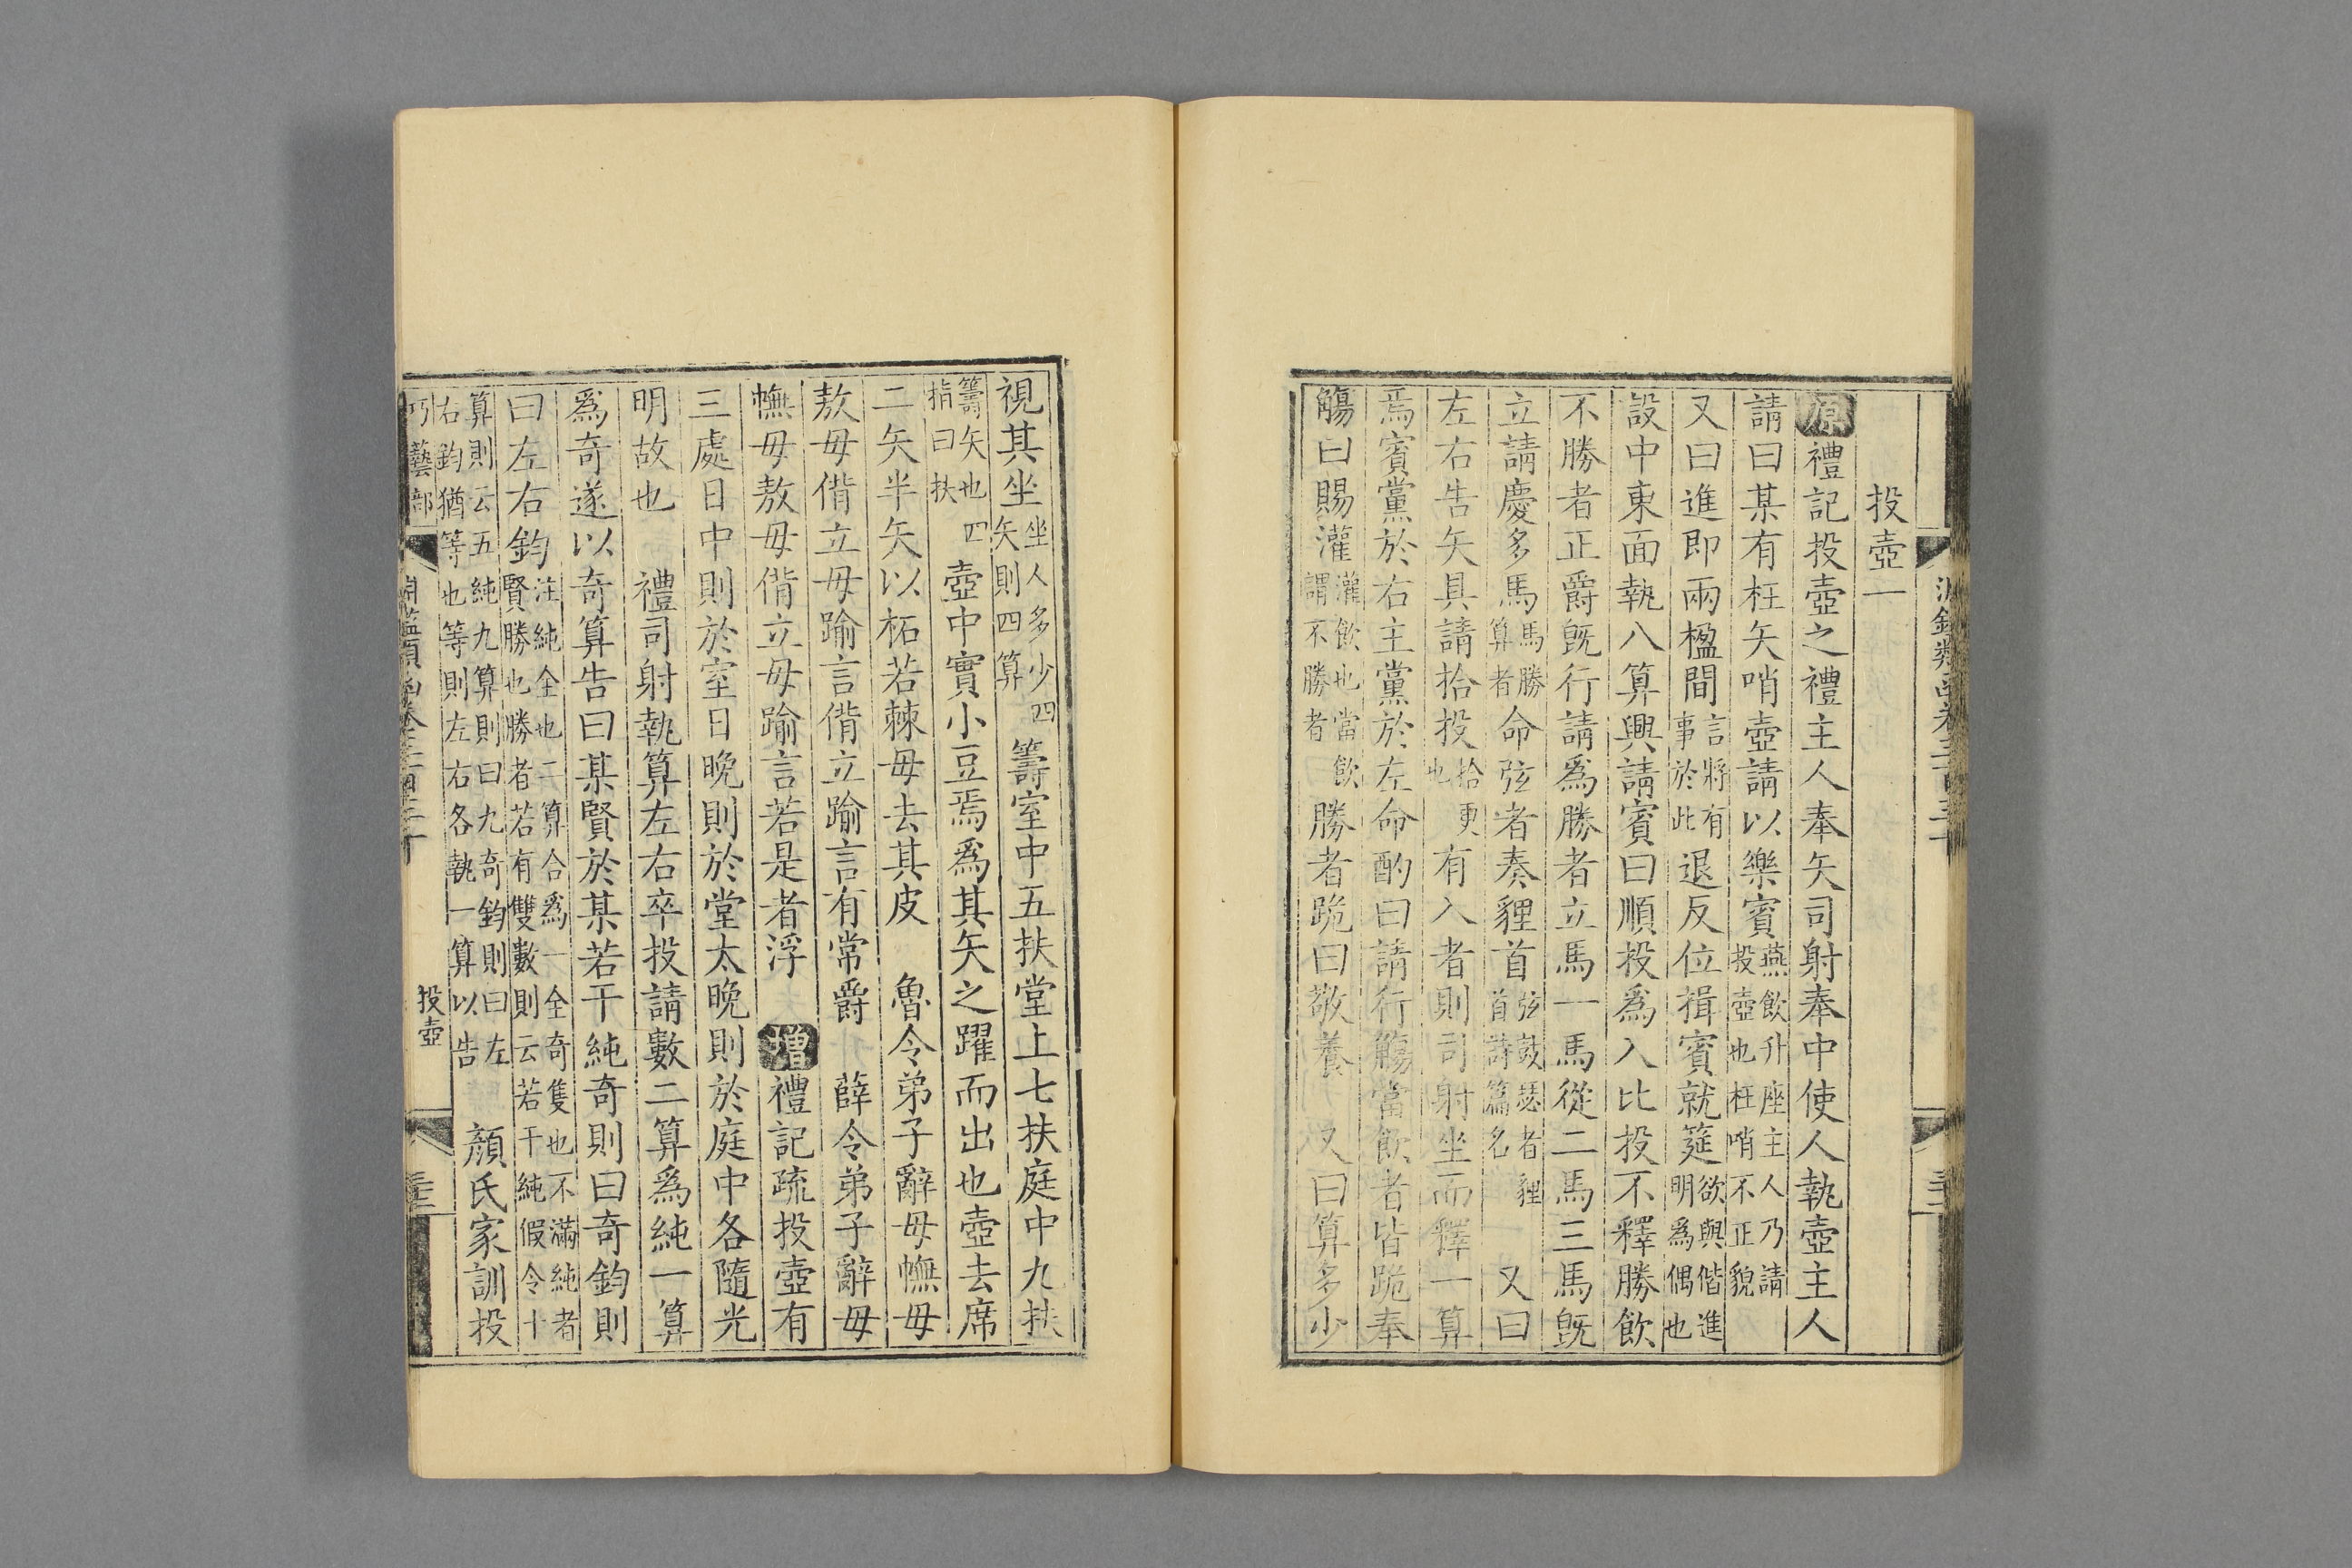 投壺一
原禮記投壺之禮主人奉矢司射奉中使人執壺主人
請曰某有枉矢哨壺請以樂賓燕飲升座主人乃請投壺也枉哨不正貌
又曰進即兩楹間言將有事於此退反位揖賓就筵欲與偕進明爲偶也
設中東面執八算興請賓曰順投爲入比投不釋勝飲
不勝者正爵旣行請爲勝者立馬一馬從二馬三馬旣
立請慶多馬馬勝算者命弦者奏貍首弦鼓瑟者貍首詩篇名 又曰
左右告矢具請拾投拾更也有入者則司射坐而釋一算
焉賓黨於右主黨於左命酌曰請行觴當飲者皆跪奉
觴曰賜灌灌飲也當飲謂不勝者勝者跪曰敬養 又曰算多少
視其坐坐人多少四矢則四算籌室中五扶堂上七扶庭中九扶
籌矢也四指曰扶壺中實小豆焉爲其矢之躍而出也壺去席
二矢半矢以柘若棘毋去其皮 魯令弟子辭毋憮毋
敖毋偝立毋踰言偝立踰言有常爵 薛令弟子辭毋
憮毋敖毋偝立毋踰言若是者浮 增禮記疏投壺有
三處日中則於室日晚則於堂太晚則於庭中各隨光
明故也 禮司射執算左右卒投請數二算爲純一算
爲奇遂以奇算告曰某賢於某若干純奇則曰奇鈞則
曰左右鈞注純全也二算合爲一全奇隻也不滿純者賢勝也勝者若有雙數則云若干純假令十
算則云五純九算則曰九奇鈞則曰左右鈞猶等也等則左右各執一算以告 顏氏家訓投
巧藝部
投壺